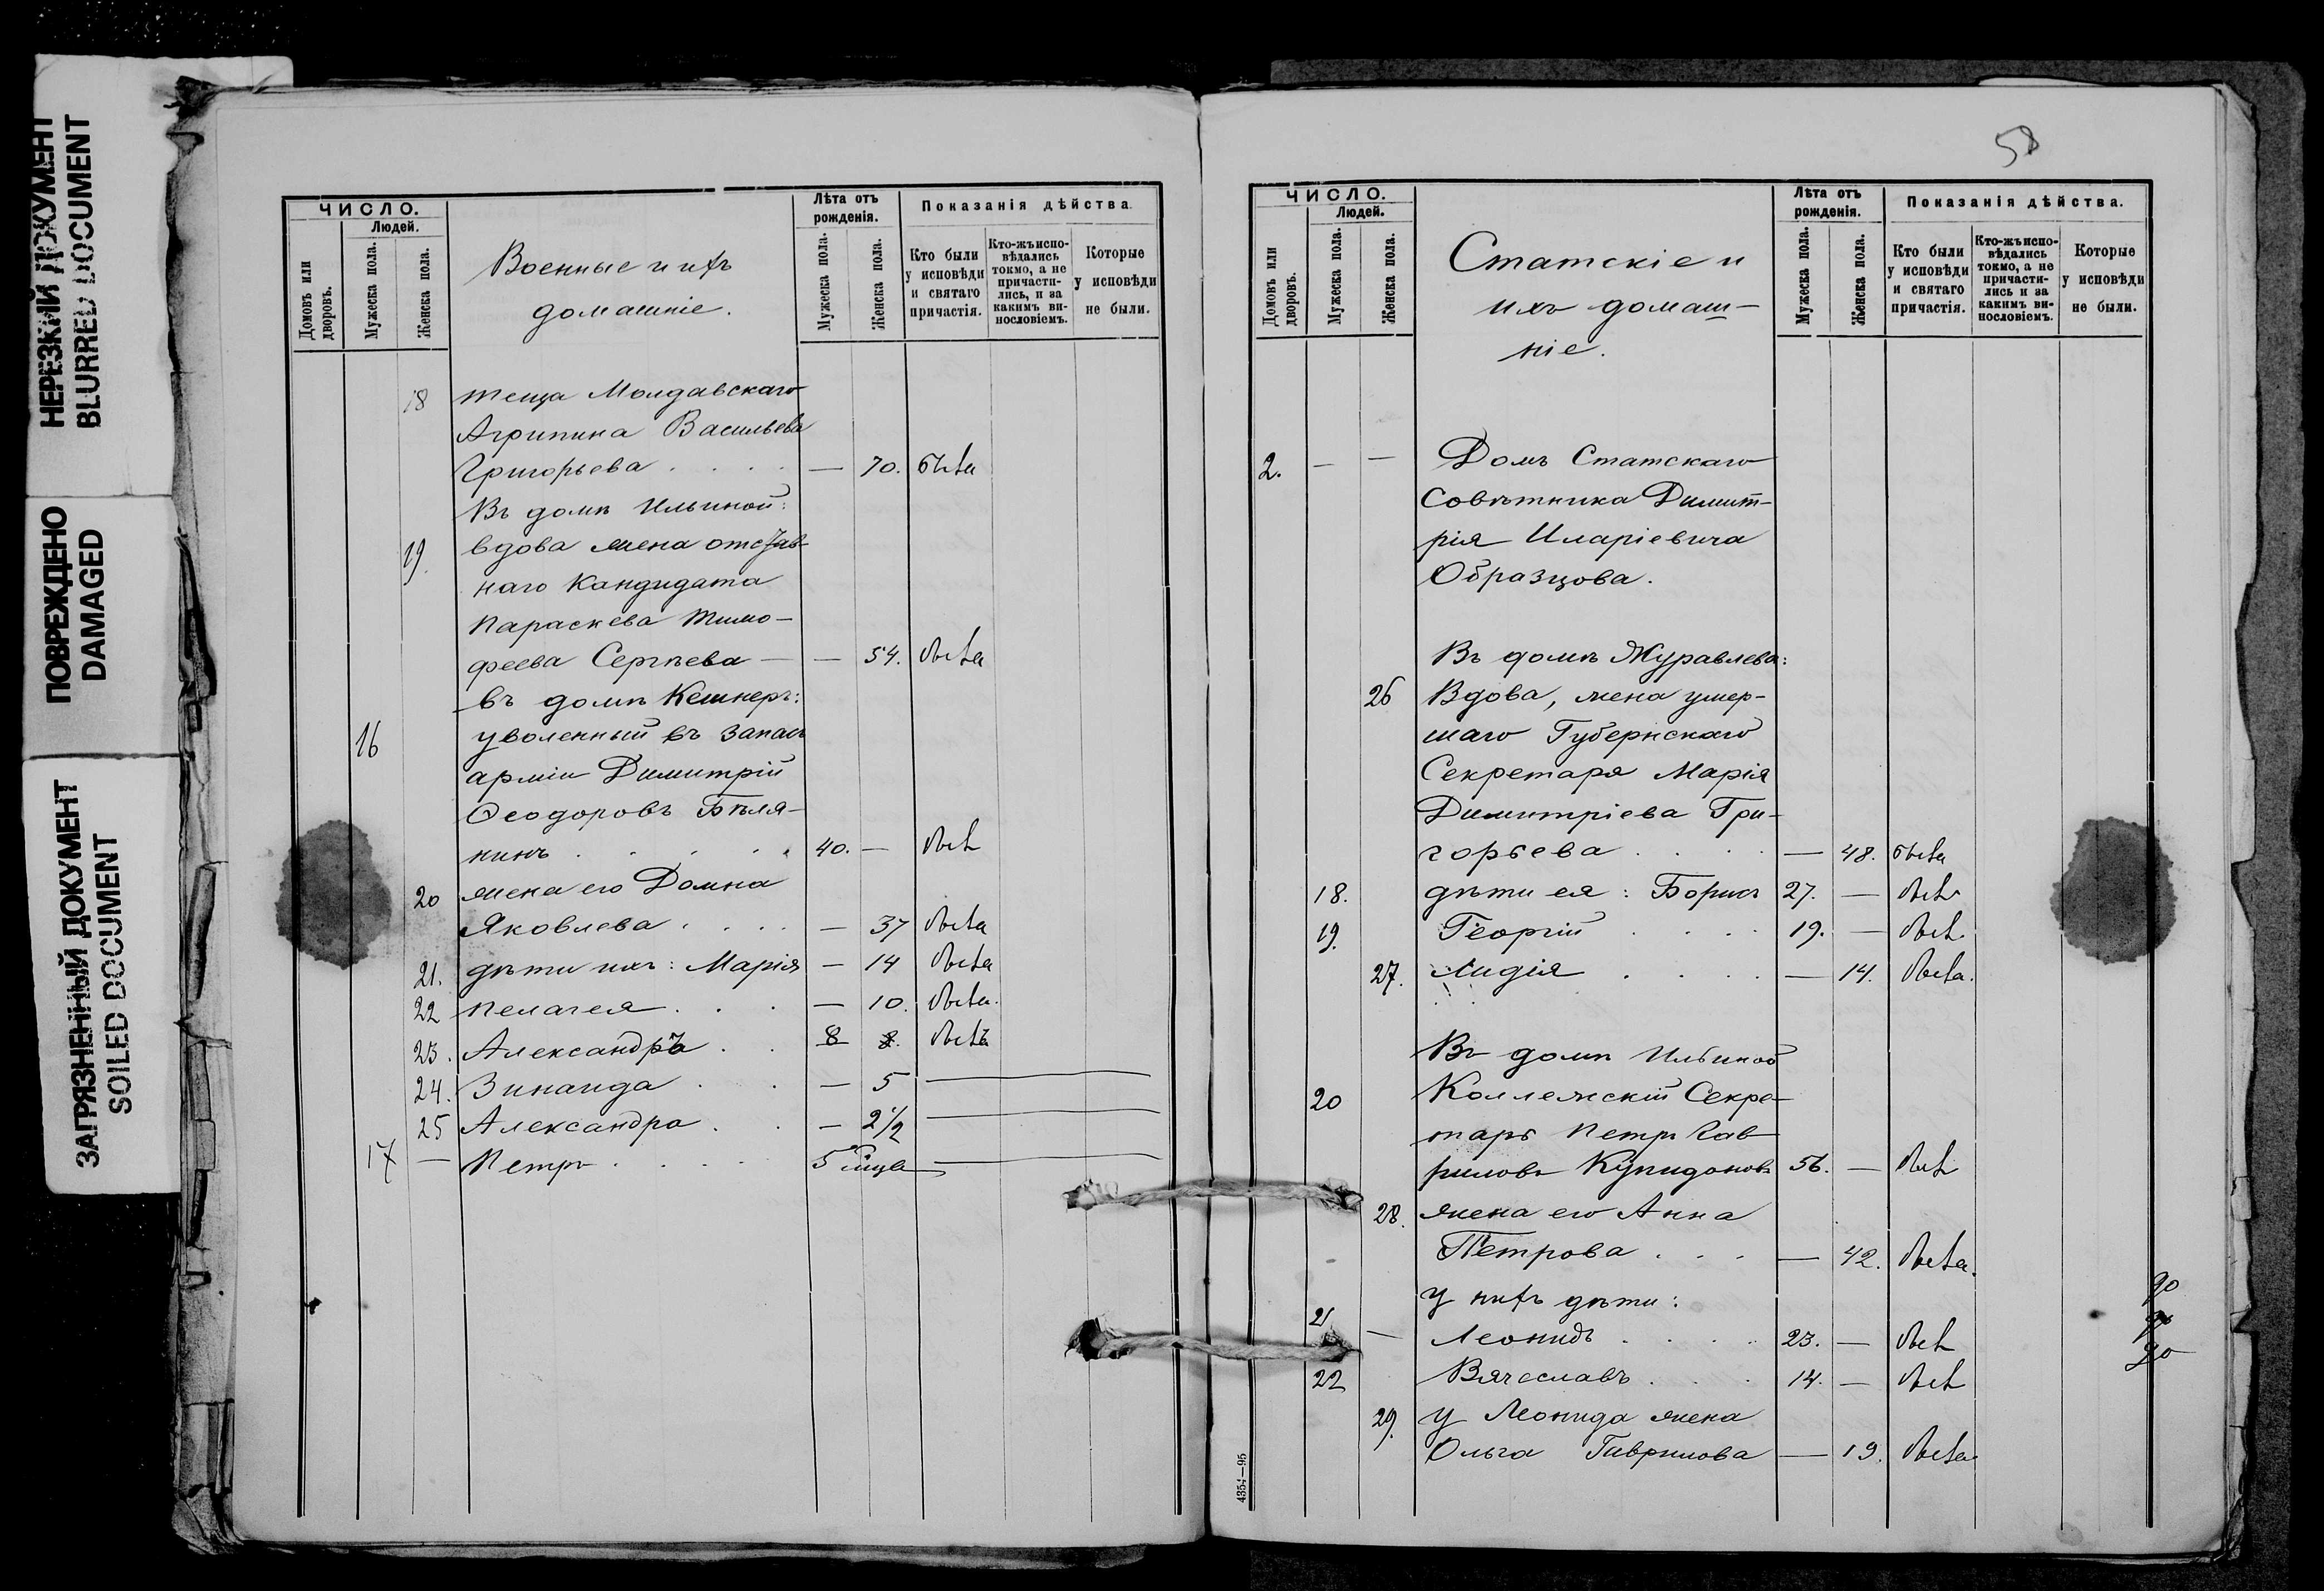 НЕРЕЗКИЙ ДОКУМЕНТ
BLURRED DOCUMENT
ПОВРЕЖДЕНО
DAMAGED
ЗАГРЯЗНЕННЫЙ ДОКУМЕНТ
SOILED DOCUMENT
ЧИСЛО.
Людей.
Домовъ или дворовъ.
Мужеска пола.
Женска пола.
Военные и ихъ
домашніе.
Лѣта отъ рожденія.
Мужеска пола.
Женска пола.
Показанія дѣйства
Кто были у исповѣди и святаго причастія.
Кто-жъ испо-вѣдались токмо, а не причасти-лись, и за какимъ ви-нословіемъ.
Которые у исповѣди не были.
18 теща Молдавскаго
Агрипина Васильева
Григорьева . . . . — 70. была
Въ домѣ Ильиной:
19. вдова жена отстав-
наго Кандидата
Параскева Тимо-
феева Сергѣева — — 54. была
въ домѣ Кешнеръ:
16 уволенный въ запасъ
арміи Димитрій
Ѳеодоровъ Бѣля-
нинъ . . . . . 40. — былъ
20 жена его Домна
Яковлева . . . . — 37 была
21. дѣти ихъ: Марія — 14 была
22 Пелагея . . . — 10. была.
23. Александръ . . 8 8. былъ
24. Зинаида . . — 5 —
25 Александра . . — 2 1/2 —
17 — Петръ . . . . 5 мца —
58
ЧИСЛО.
Людей.
Домовъ или дворовъ.
Мужеска пола.
Женска пола.
Статскіе и
ихъ домаш-
ніе.
Лѣта отъ рожденія.
Мужеска пола.
Женска пола.
Показанія дѣйства.
Кто были у исповѣди и святаго причастія.
Кто-жъ испо-вѣдались токмо, а не причасти-лись и за какимъ ви-нословіемъ.
Которые у исповѣди не были.
2. — — Домъ Статскаго
Совѣтника Димит-
рія Иларіевича
Образцова.
Въ домѣ Журавлева:
26 Вдова, жена умер-
шаго Губернскаго
Секретаря Марія
Димитріева Гри-
горьева . . . . — 48. была
18. дѣти ея: Борисъ 27. — былъ
19. Георгій . . . . 19. — былъ.
27. Лидія . . . . — 14. была.
Въ домѣ Ильиной
20 Коллежскій Секре-
тарь Петръ Гав-
риловъ Купидоновъ 56. — былъ
28. жена его Анна
Петрова . . . — 42. была.
у нихъ дѣти:
21 — Леонидъ . . . . 23. — былъ
22 Вячеславъ . . . 14. — былъ
29. у Леонида жена
Ольга Гаврилова — 19. была
4354—95